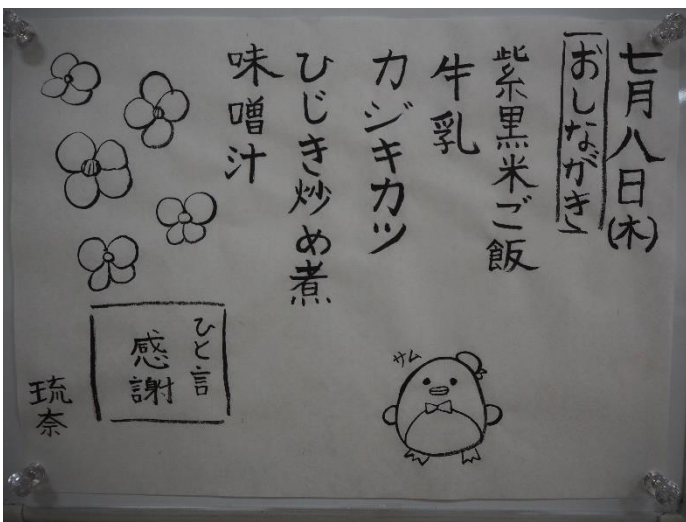 七月八日(木)
「おしながき」
紫黒米ご飯
牛乳
カジキカツ
ひじき炒め煮
味噌汁
サム
ひと言
感謝
琉奈